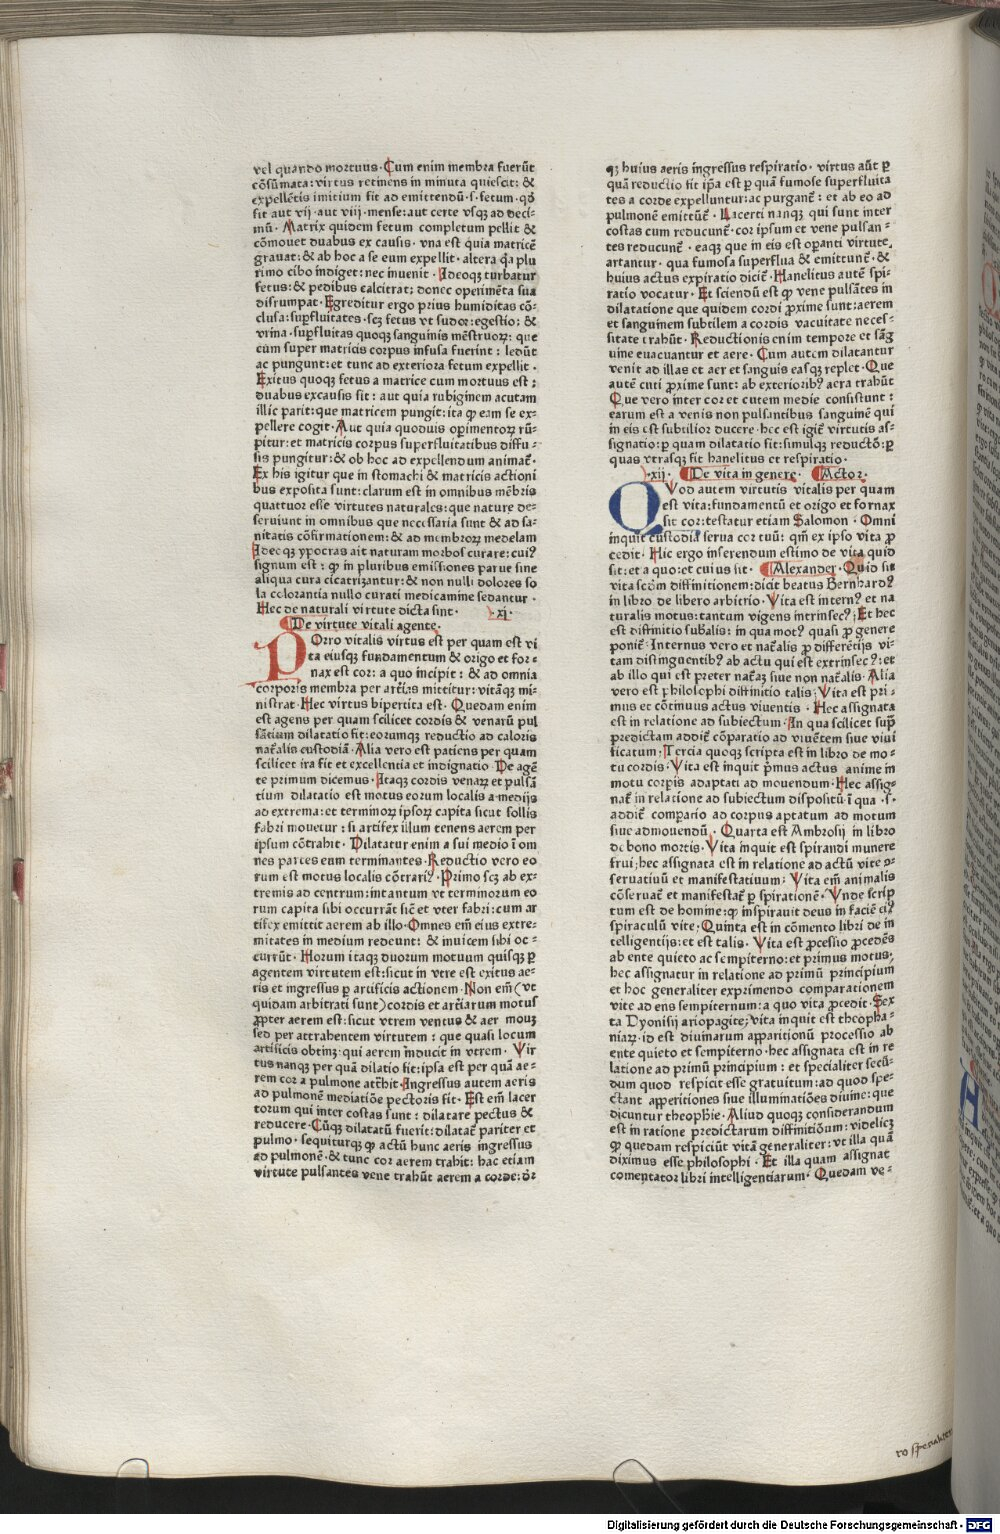 vel quando mortuus · Cum enim membra fuerūt
cōsūmata: virtus retinens in minuta quiescit: &
expellētis initium fit ad emittendū · s · fetum · qđ
fit aut vij · aut viij · mense: aut certe vsqꝫ ad deci-
mū · Matrix quidem fetum completum pellit &
cōmouet duabus ex causis · vna est quia matricē
grauat: & ab hoc a se eum expellit · altera qꝛ plu
rimo cibo indiget: nec inuenit · Ideoqꝫ turbatur
fetus: & pedibus calcitrat; donec operimēta sua
disrumpat · Egreditur ergo prius humiditas cō-
clusa: suꝑfluitates · scꝫ fetus vt sudor: egestio; &
vrina · suꝑfluitas quoqꝫ sanguinis mēstruoꝝ: que
cum super matricis corpus infusa fuerint: ledūt
ac pungunt: et tunc ad exteriora fetum expellit ·
Exitus quoqꝫ fetus a matrice cum mortuus est:
duabus excausis fit: aut quia rubiginem acutam
illic parit: que matricem pungit: ita ꝙ eam se ex-
pellere cogit · Aut quia quoduis oꝑimentoꝝ rū-
pitur: et matricis corpus superfluitatibus diffu-
sis pungitur: & ob hoc ad expellendum animat̄ ·
Ex his igitur que in stomachi & matricis actioni
bus exposita sunt: clarum est in omnibus mēbris
quattuor esse virtutes naturales: que nature de-
seruiunt in omnibus que necessaria sunt & ad sa-
nitatis cōfirmationem: & ad membroꝝ medelam
Ideoqꝫ ypocras ait naturam morbos curare: cuiꝰ
signum est: ꝙ in pluribus emissiones parue sine
aliqua cura cicatrizantur: & non nulli dolores so
la colorantia nullo curati medicamine sedantur ·
Hec de naturali virtute dicta sint · · xj ·
De virtute vitali agente ·
POrro vitalis virtus est per quam est vi
ta eiusqꝫ fundamentum & origo et for-
nax est cor: a quo incipit: & ad omnia
corporis membra per artīas mittitur: vitāqꝫ mi-
nistrat · Hec virtus bipertita est · Quedam enim
est agens per quam scilicet cordis & venarū pul
sātium dilatatio fit: eorumqꝫ reductio ad caloris
nat̄alis custodiā · Alia vero est patiens per quam
scilicet ira fit et excellentia et indignatio · De agē
te primum dicemus · Itaqꝫ cordis venaꝝ et pulsā
tium dilatatio est motus eorum localis a medijs
ad extrema: et terminoꝝ ipsoꝝ capita sicut follis
fabri mouetur: si artifex illum tenens aerem per
ipsum cōtrahit · Dilatatur enim a sui medio ī om
nes partes eum terminantes · Reductio vero eo
rum est motus localis cōtrariꝰ · Primo scꝫ ab ex-
tremis ad centrum: intantum vt terminorum eo
rum capita sibi occurrāt sic̄ et vter fabri: cum ar
tifex emittit aerem ab illo · Omnes em̄ eius extre-
mitates in medium redeunt: & inuicem sibi oc-
currūt · Horum itaqꝫ duorum motuum quisqꝫ ꝑ
agentem virtutem est: sicut in vtre est exitus ae-
ris et ingressus ꝑ artificis actionem · Non em̄ (vt
quidam arbitrati sunt) cordis et art̄iarum motus
ꝓpter aerem est: sicut vtrem ventus & aer mouꝫ
sed per attrahentem virtutem: que quasi locum
artificis obtinꝫ: qui aerem inducit in vtrem · Vir
tus nanqꝫ per quā dilatio fit: ipsa est per quā ae-
rem cor a pulmone att̄hit · Ingressus autem aeris
ad pulmonē mediatiōe pectoris fit · Est em̄ lacer
torum qui inter costas sunt: dilatare pectus &
reducere · Cūqꝫ dilatatū fuerit: dilatat̄ pariter et
pulmo · sequiturqꝫ ꝙ actū hunc aeris ingressus
ad pulmonē · & tunc cor aerem trahit: hac etiam
virtute pulsantes vene trahūt aerem a corde: dr̄
qꝫ huius aeris ingressus respiratio · virtus aūt ꝑ
quā reductio fit ip̄a est ꝑ quā fumose superfluita
tes a corde expelluntur: ac purgant̄: et ab eo ad
pulmonē emittūt̄ · Lacerti nanqꝫ qui sunt inter
costas cum reducunt̄ · cor ipsum et vene pulsan-
tes reducunt̄ · eaqꝫ que in eis est oꝑanti virtute
artantur · qua fumosa superflua & emittunt̄ · &
huius actus expiratio dicit̄ · Hanelitus autē spi-
ratio vocatur · Et sciendū est ꝙ vene pulsātes in
dilatatione que quidem cordi ꝓxime sunt: aerem
et sanguinem subtilem a cordis vacuitate neces-
sitate trahūt · Reductionis enim tempore et sāg
uine euacuantur et aere · Cum autem dilatantur
venit ad illas et aer et sanguis easqꝫ replet · Que
autē cuti ꝓxime sunt: ab exterioribꝰ aera trahūt
Que vero inter cor et cutem medie consistunt:
earum est a venis non pulsantibus sanguinē qui
in eis est subtilior ducere · hec est igit̄ virtutis as-
signatio: ꝑ quam dilatatio fit: simulqꝫ reductō: ꝑ
quas vtrasqꝫ fit hanelitus et respiratio ·
· xij · De vita in genere · Actor ·
QVod autem virtutis vitalis per quam
est vita: fundamentū et origo et fornax
sit cor: testatur etiam Salomon · Omni
inquit custodia serua cor tuū: qm̄ ex ipso vita ꝓ
cedit · Hic ergo inserendum estimo de vita quid
sit: et a quo: et cuius sit · Alexander · Quid sit
vita scḋm diffinitionem: dicit beatus Bernhardꝰ
in libro de libero arbitrio · Vita est internꝰ et na
turalis motus: tantum vigens intrinsecꝰ; Et hec
est diffinitio sub̄alis: in qua motꝰ quasi ꝓ genere
ponit̄ · Internus vero et nat̄alis ꝓ differētijs vi-
tam distinguentibꝰ ab actu qui est extrinsecꝰ: et
ab illo qui est preter nat̄aꝫ siue non nat̄alis · Alia
vero est philosophi diffinitio talis; Vita est pri-
mus et cōtinuus actus viuentis · Hec assignata
est in relatione ad subiectum · In qua scilicet supꝑ
predictam addit̄ cōparatio ad viuētem siue viui
ficatum; Tercia quoqꝫ scripta est in libro de mo-
tu cordis · Vita est inquit p̄mus actus anime in
motu corꝑis adaptati ad mouendum · Hec assig-
nat̄ in relatione ad subiectum dispositū: ī qua · s ·
addit̄ comꝑatio ad corpus aptatum ad motum
siue admouendū · Quarta est Ambrosij in libro
de bono mortis · Vita inquit est spirandi munere
frui; hec assignata est in relatione ad actū vite ↄ-
seruatiuū et manifestatiuum; Vita em̄ animalis
cōseruat̄ et manifestat̄ ꝑ spirationē · Vnde scrip
tum est de homine: ꝙ inspirauit deus in faciē eiꝰ
spiraculū vite; Quinta est in cōmento libri de in
telligentijs: et est talis · Vita est ꝓcessio ꝓcedēs
ab ente quieto ac sempiterno: et primus motus;
hec assignatur in relatione ad primū principium
et hoc generaliter exprimendo comparationem
vite ad ens sempiternum: a quo vita ꝓcedit · Sex
ta Dyonisij ariopagite; Vita inquit est theopha-
niaꝝ · id est diuinarum apparitionū processio ab
ente quieto et sempiterno · hec assignata est in re
latione ad primū principium: et specialiter secū-
dum quod respicit esse gratuitum: ad quod spe-
ctant apperitiones siue illuminatiōes diuine: que
dicuntur theophīe · Aliud quoqꝫ considerandum
est in ratione predictarum diffinitiōum: videlicꝫ
ꝙ quedam respiciūt vitā generaliter: vt illa quā
diximus esse philosophi · Et illa quam assignat
comentator libri intelligentiarum · Quedam ve-
Digitalisierung gefördert durch die Deutsche Forschungsgemeinschaft - DFG